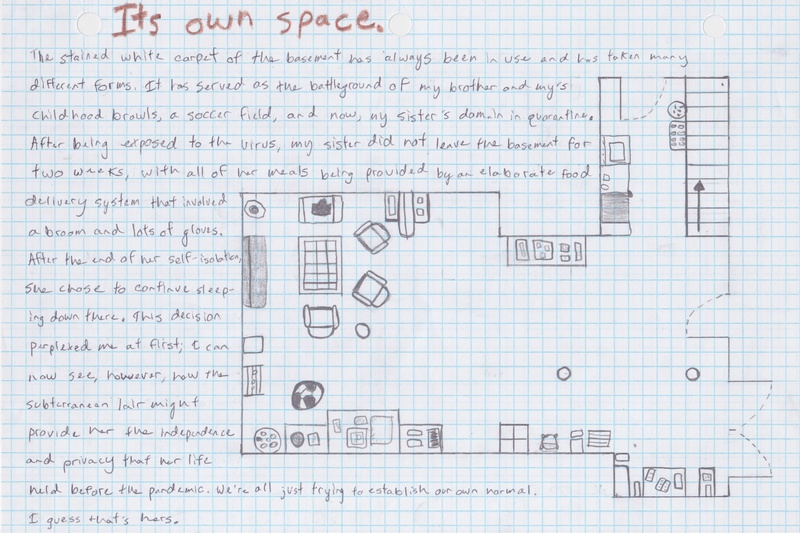 Its own space.
The stained white carpet of the basement has always been in use and has taken many
different forms. It has served as the battleground of my brother and my's
childhood brawls, a soccer field, and now, my sister's domain in quarantine.
After being exposed to the virus, my sister did not leave the basement for
two weeks, with all of her meals being provided by an elaborate food
delivery system that involved
a broom and lots of gloves.
After the end of her self-isolation,
she chose to continue sleep-
ing down there. This decision
perplexed me at first; I can
now see, however, how the
subterranean lair might
provide her the independence
and privacy that her life
held before the pandemic. We're all just trying to establish our own normal.
I guess that's hers.